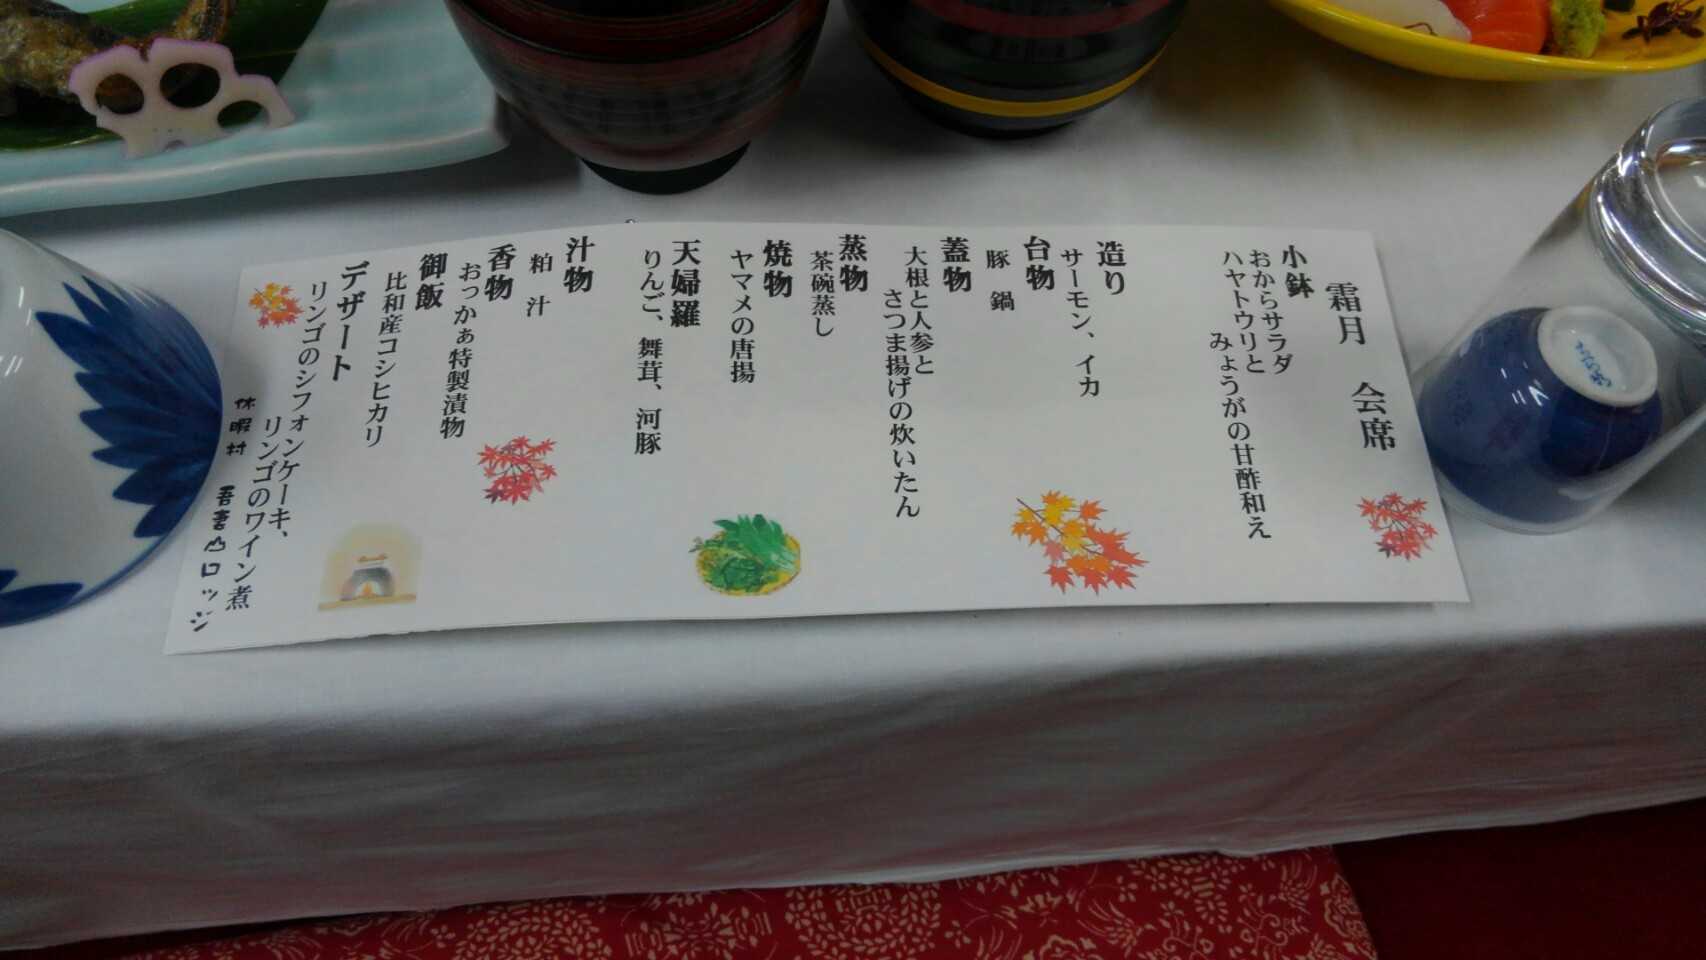 霜月　会席
小鉢
おからサラダ
ハヤトウリと
みょうがの甘酢和え
造り
サーモン、イカ
台物
豚　鍋
蓋物
大根と人参と
さつま揚げの炊いたん
蒸物
茶碗蒸し
焼物
ヤマメの唐揚
天婦羅
りんご、舞茸、河豚
汁物
粕　汁
香物
おっかぁ特製漬物
御飯
比和産コシヒカリ
デザート
リンゴのシフォンケーキ、
リンゴのワイン煮
休暇村　吾妻山ロッジ